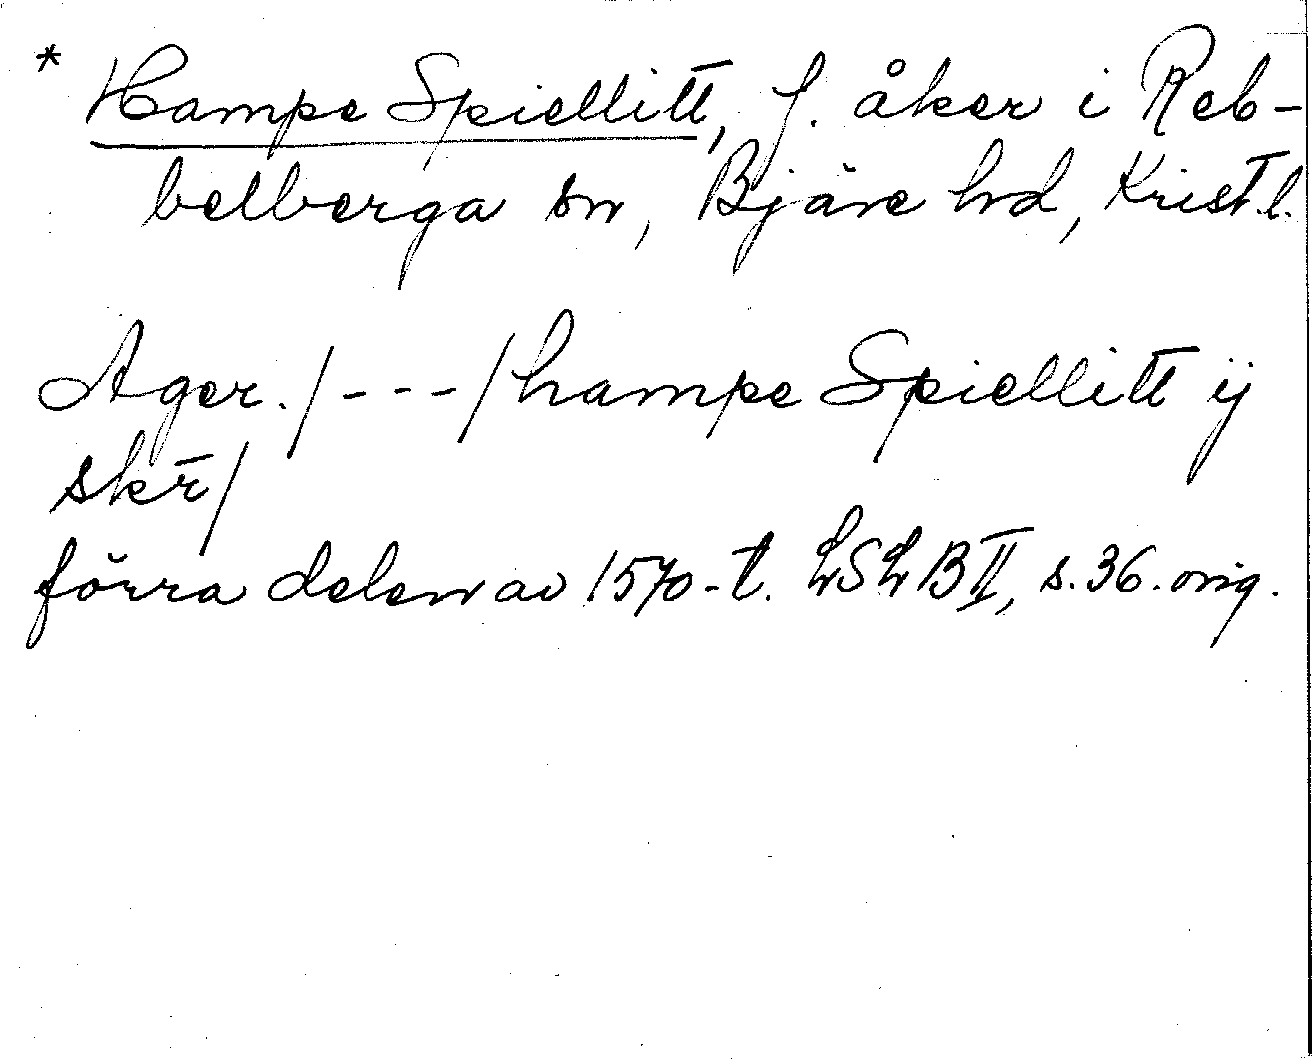 * Hampe Spiellitt, f. åker i Reb-
belberga sn, Bjäre hd, Krist.l.
Ager. / - - - / hampe Spiellitt ij
skr̄ /
förra delen av 1570-t. LSLB II, s. 36. orig.